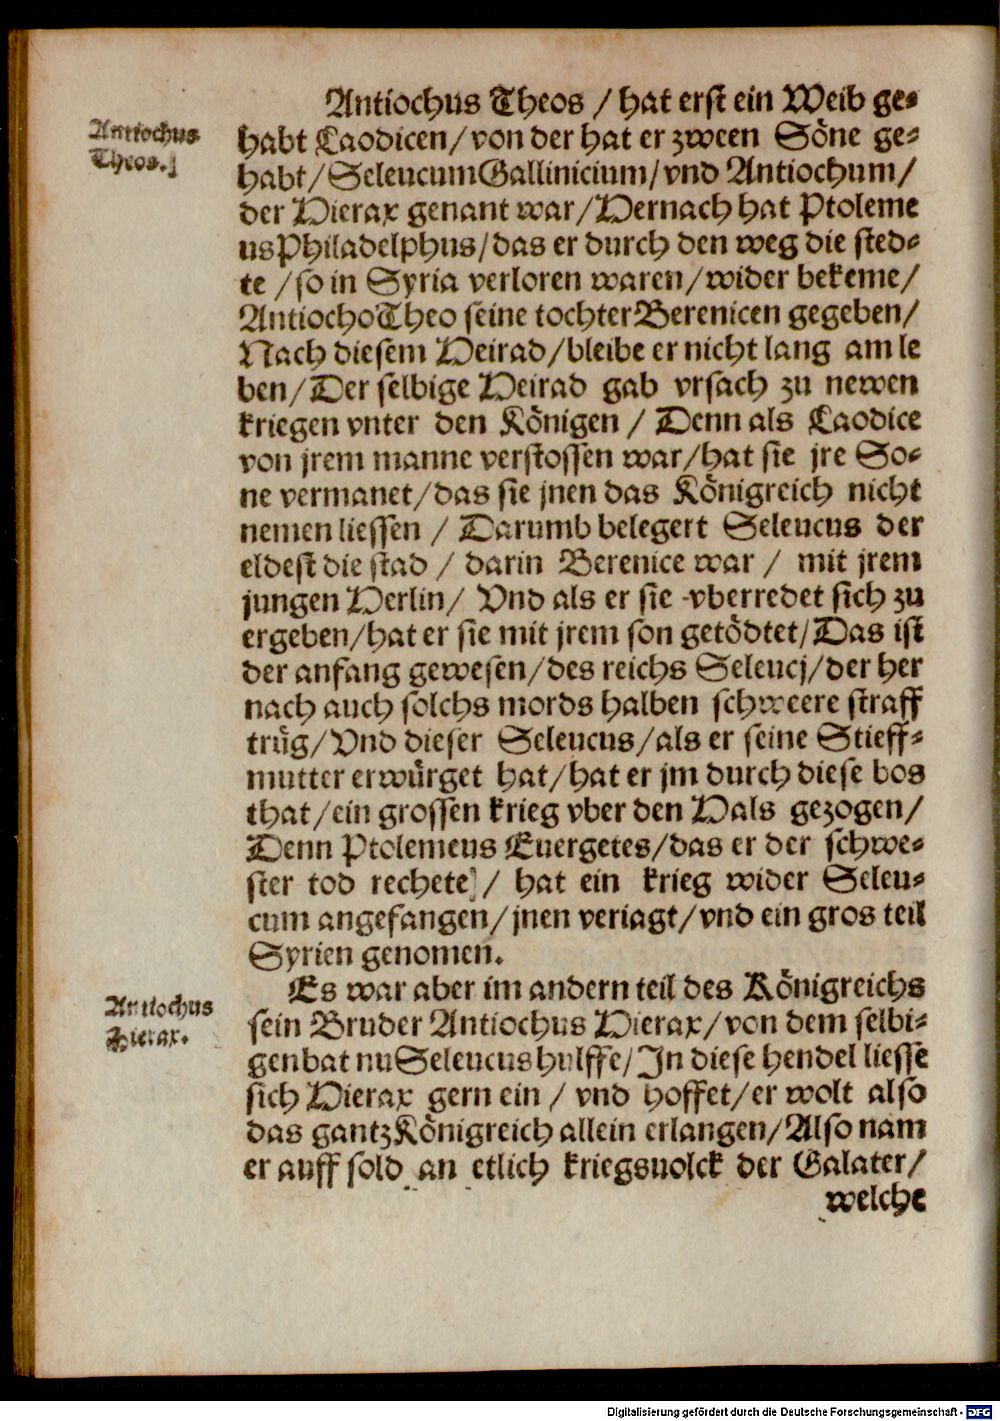 Antiochus Theos / hat erst ein Weib ge⸗
Antiochus
Theos.
habt Laodicen / von der hat er zween Söne ge⸗
habt / SeleucumGallinicium / vnd Antiochum /
der Hierax genant war / Hernach hat Ptoleme
usPhiladelphus / das er durch den weg die sted⸗
te / so in Syria verloren waren / wider bekeme /
AntiochoTheo seine tochterBerenicen gegeben /
Nach diesem Heirad / bleibe er nicht lang am le
ben / Der selbige Heirad gab vrsach zu newen
kriegen vnter den Königen / Denn als Laodice
von jrem manne verstossen war / hat sie jre So⸗
ne vermanet / das sie jnen das Königreich nicht
nemen liessen / Darumb belegert Seleucus der
eldest die stad / darin Berenice war / mit jrem
jungen Herlin / Vnd als er sie vberredet sich zu
ergeben / hat er sie mit jrem son getödtet / Das ist
der anfang gewesen / des reichs Seleucj / der her
nach auch solchs mords halben schweere straff
trůg / Vnd dieser Seleucus / als er seine Stieff⸗
mutter erwůrget hat / hat er jm durch diese bos
that / ein grossen krieg vber den Hals gezogen /
Denn Ptolemeus Euergetes / das er der schwe⸗
ster tod rechete / hat ein krieg wider Seleu⸗
cum angefangen / jnen veriagt / vnd ein gros teil
Syrien genomen.
Es war aber im andern teil des Königreichs
Antiochus
Hierax.
sein Bruder Antiochus Hierax / von dem selbi⸗
genbat nuSeleucus hulffe / In diese hendel liesse
sich Hierax gern ein / vnd hoffet / er wolt also
das gantzKönigreich allein erlangen / Also nam
er auff sold an etlich kriegsuolck der Galater /
welche
Digitalisierung gefördert durch die Deutsche Forschungsgemeinschaft - DFG